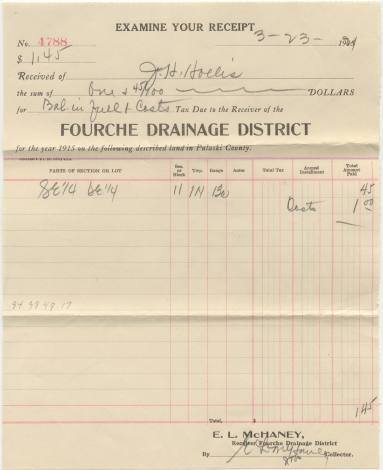 EXAMINE YOUR RECEIPT
No. 4788 3-23- 19
$ 1.45
Received of J. H. Hollis
the sum of One & 45/100 DOLLARS
for Bal in full & Costs Tax Due to the Receiver of the
FOURCHE DRAINAGE DISTRICT
for the year 1915 on the following described land in Pulaski County.
PARTS OF SECTION OR LOT Sec. or Block Twp. Range Acres Total Tax Annual Installment Total Amount Paid
SE1/4 SE1/4 11 1N 13W 45
Costs 1 00
34 39 49.17
1.45
Total, $
E. L. McHANEY,
Receiver Fourche Drainage District
By Collector.